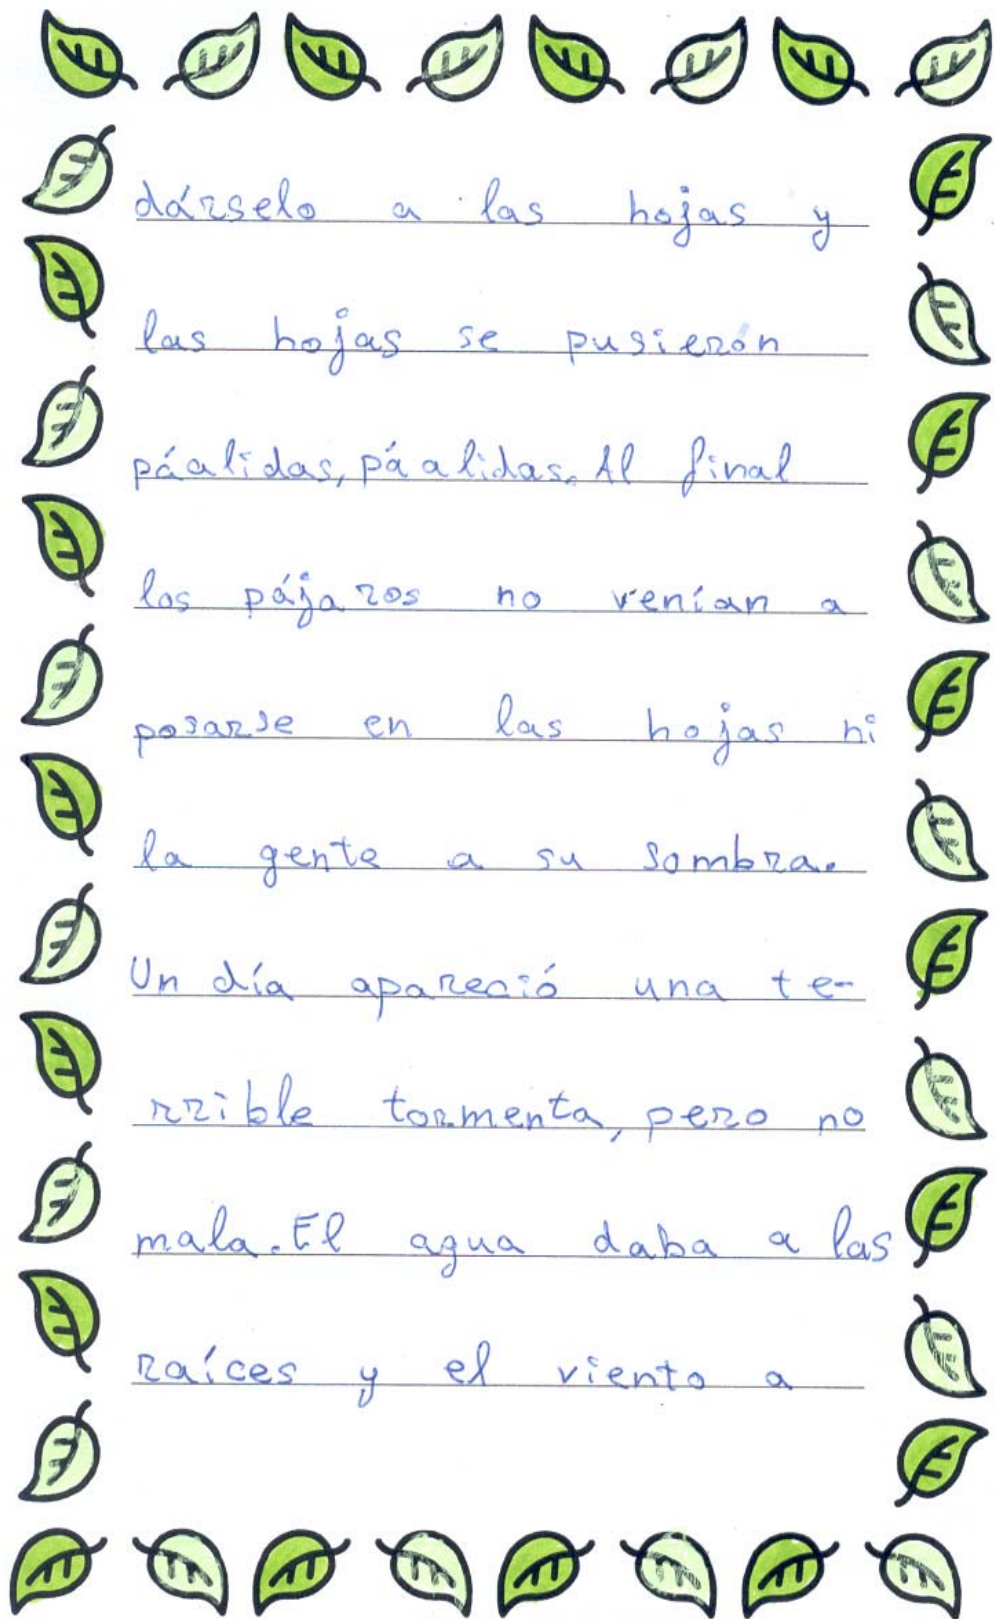 dárselo a las hojas y
las hojas se pusierón
páalidas, páalidas. Al final
los pájaros no venían a
posarse en las hojas ni
la gente a su sombra.
Un día apareció una te-
rrible tormenta, pero no
mala. El agua daba a las
raíces y el viento a